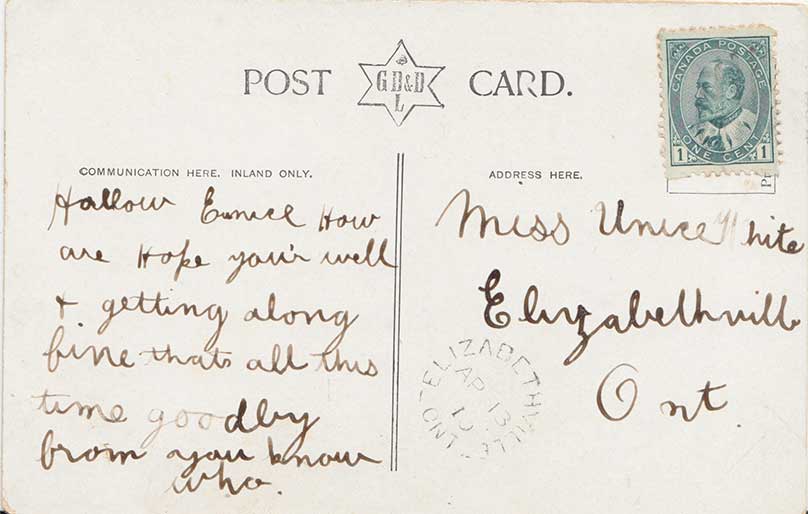 POST CARD.
G D&D
L
CANADA POSTAGE
1 ONE CENT 1
COMMUNICATION HERE. INLAND ONLY.
Hallow Eunice How
are Hope your well
& getting along
fine thats all this
time goodby
from you know
who.
ADDRESS HERE.
Miss Unice White
Elizabethville
Ont.
ELIZABETHVILLE
ONT
AP 13